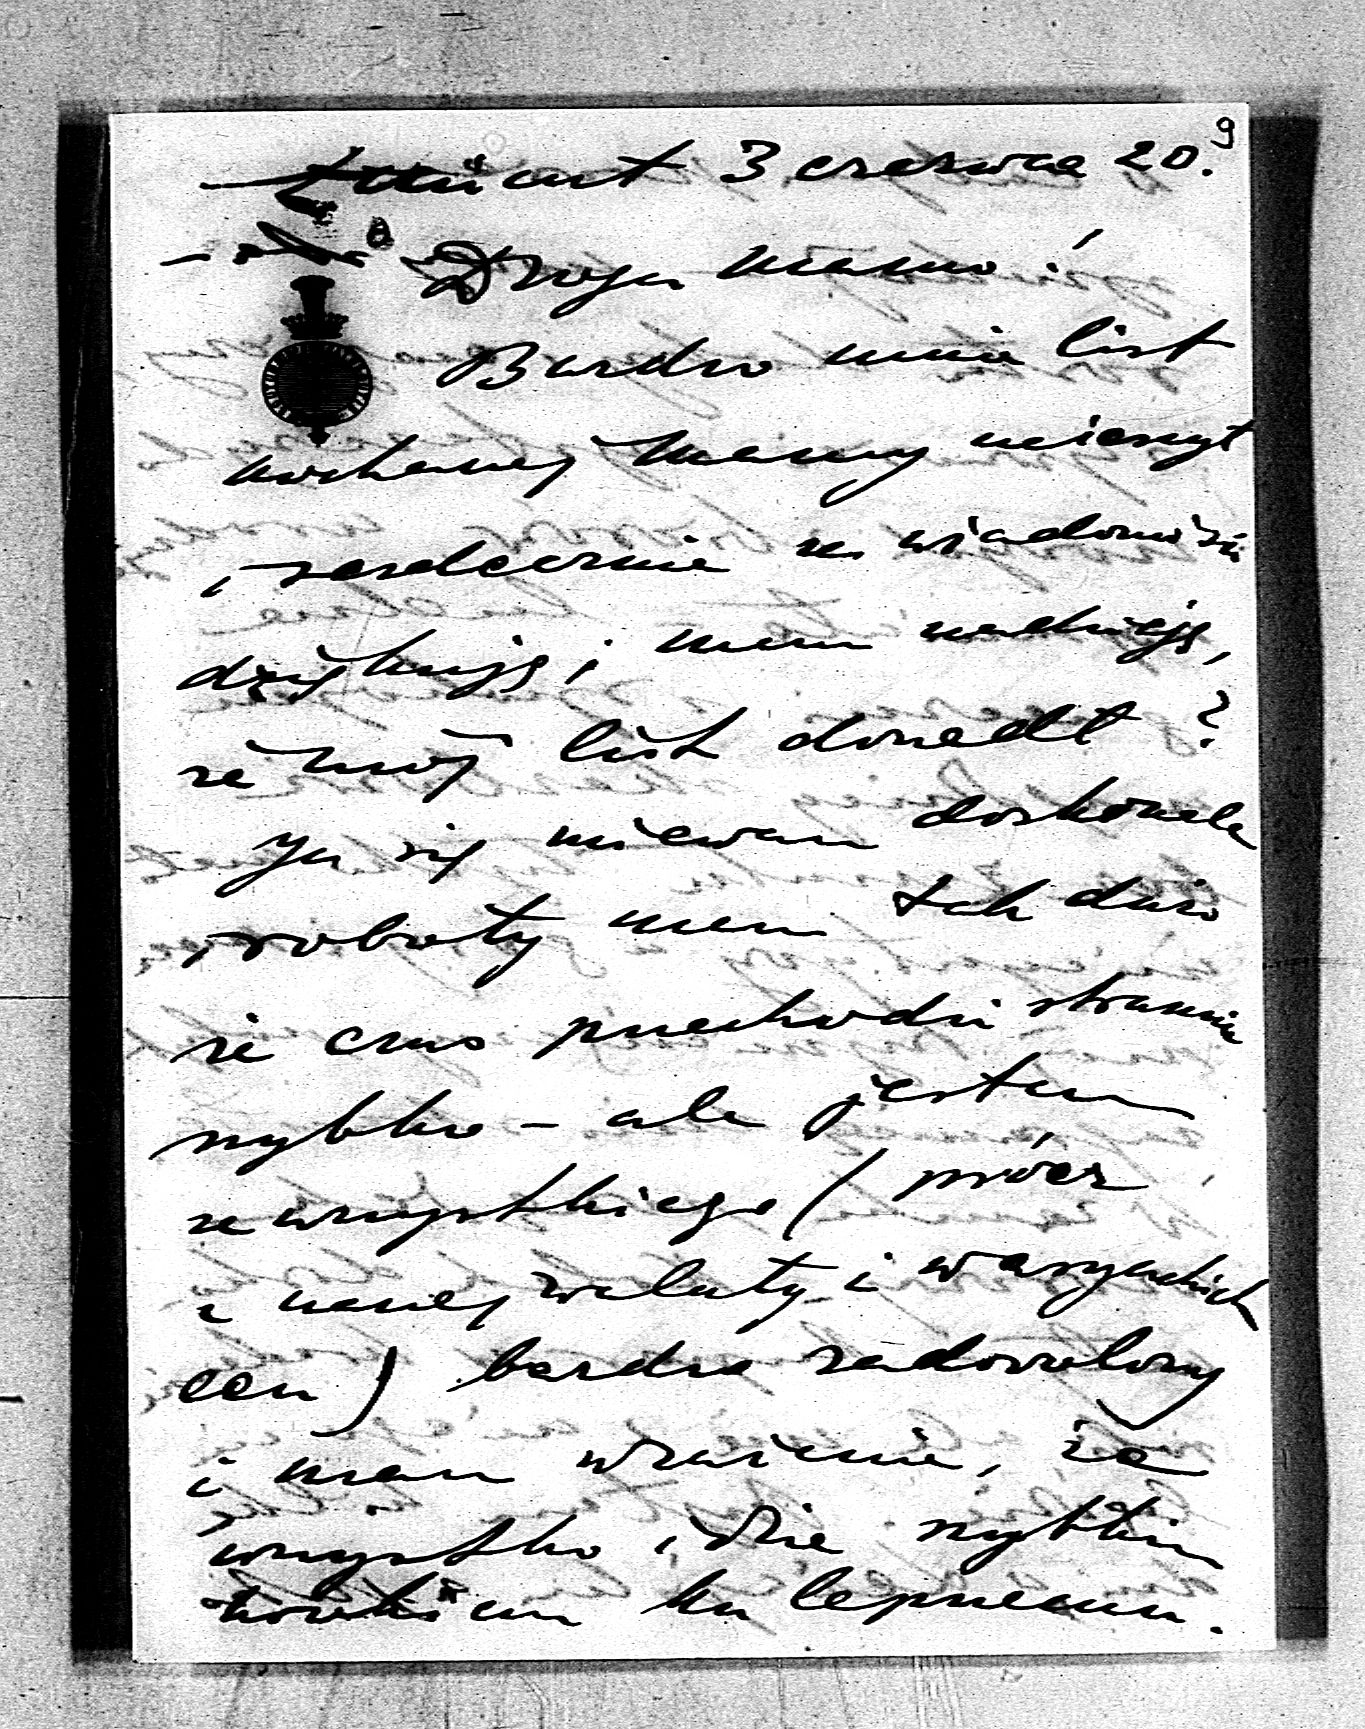 9
Łańcut 3 czerwca 20.
Droga Mamo!
Bardzo mnie list
kochanej Mamy ucieszył
i serdecznie za wiadomości
dziękuję; mam nadzieję,
że mój list doszedł?
Ja się miewam doskonale
roboty mam tak dużo
że czas przechodzi strasznie
szybko – ale jestem
ze wszystkiego (prócz
z naszej waluty i warszawskich
cen) bardzo zadowolony
i mam wrażenie, że
wszystko idzie szybkim
krokiem ku lepszemu.